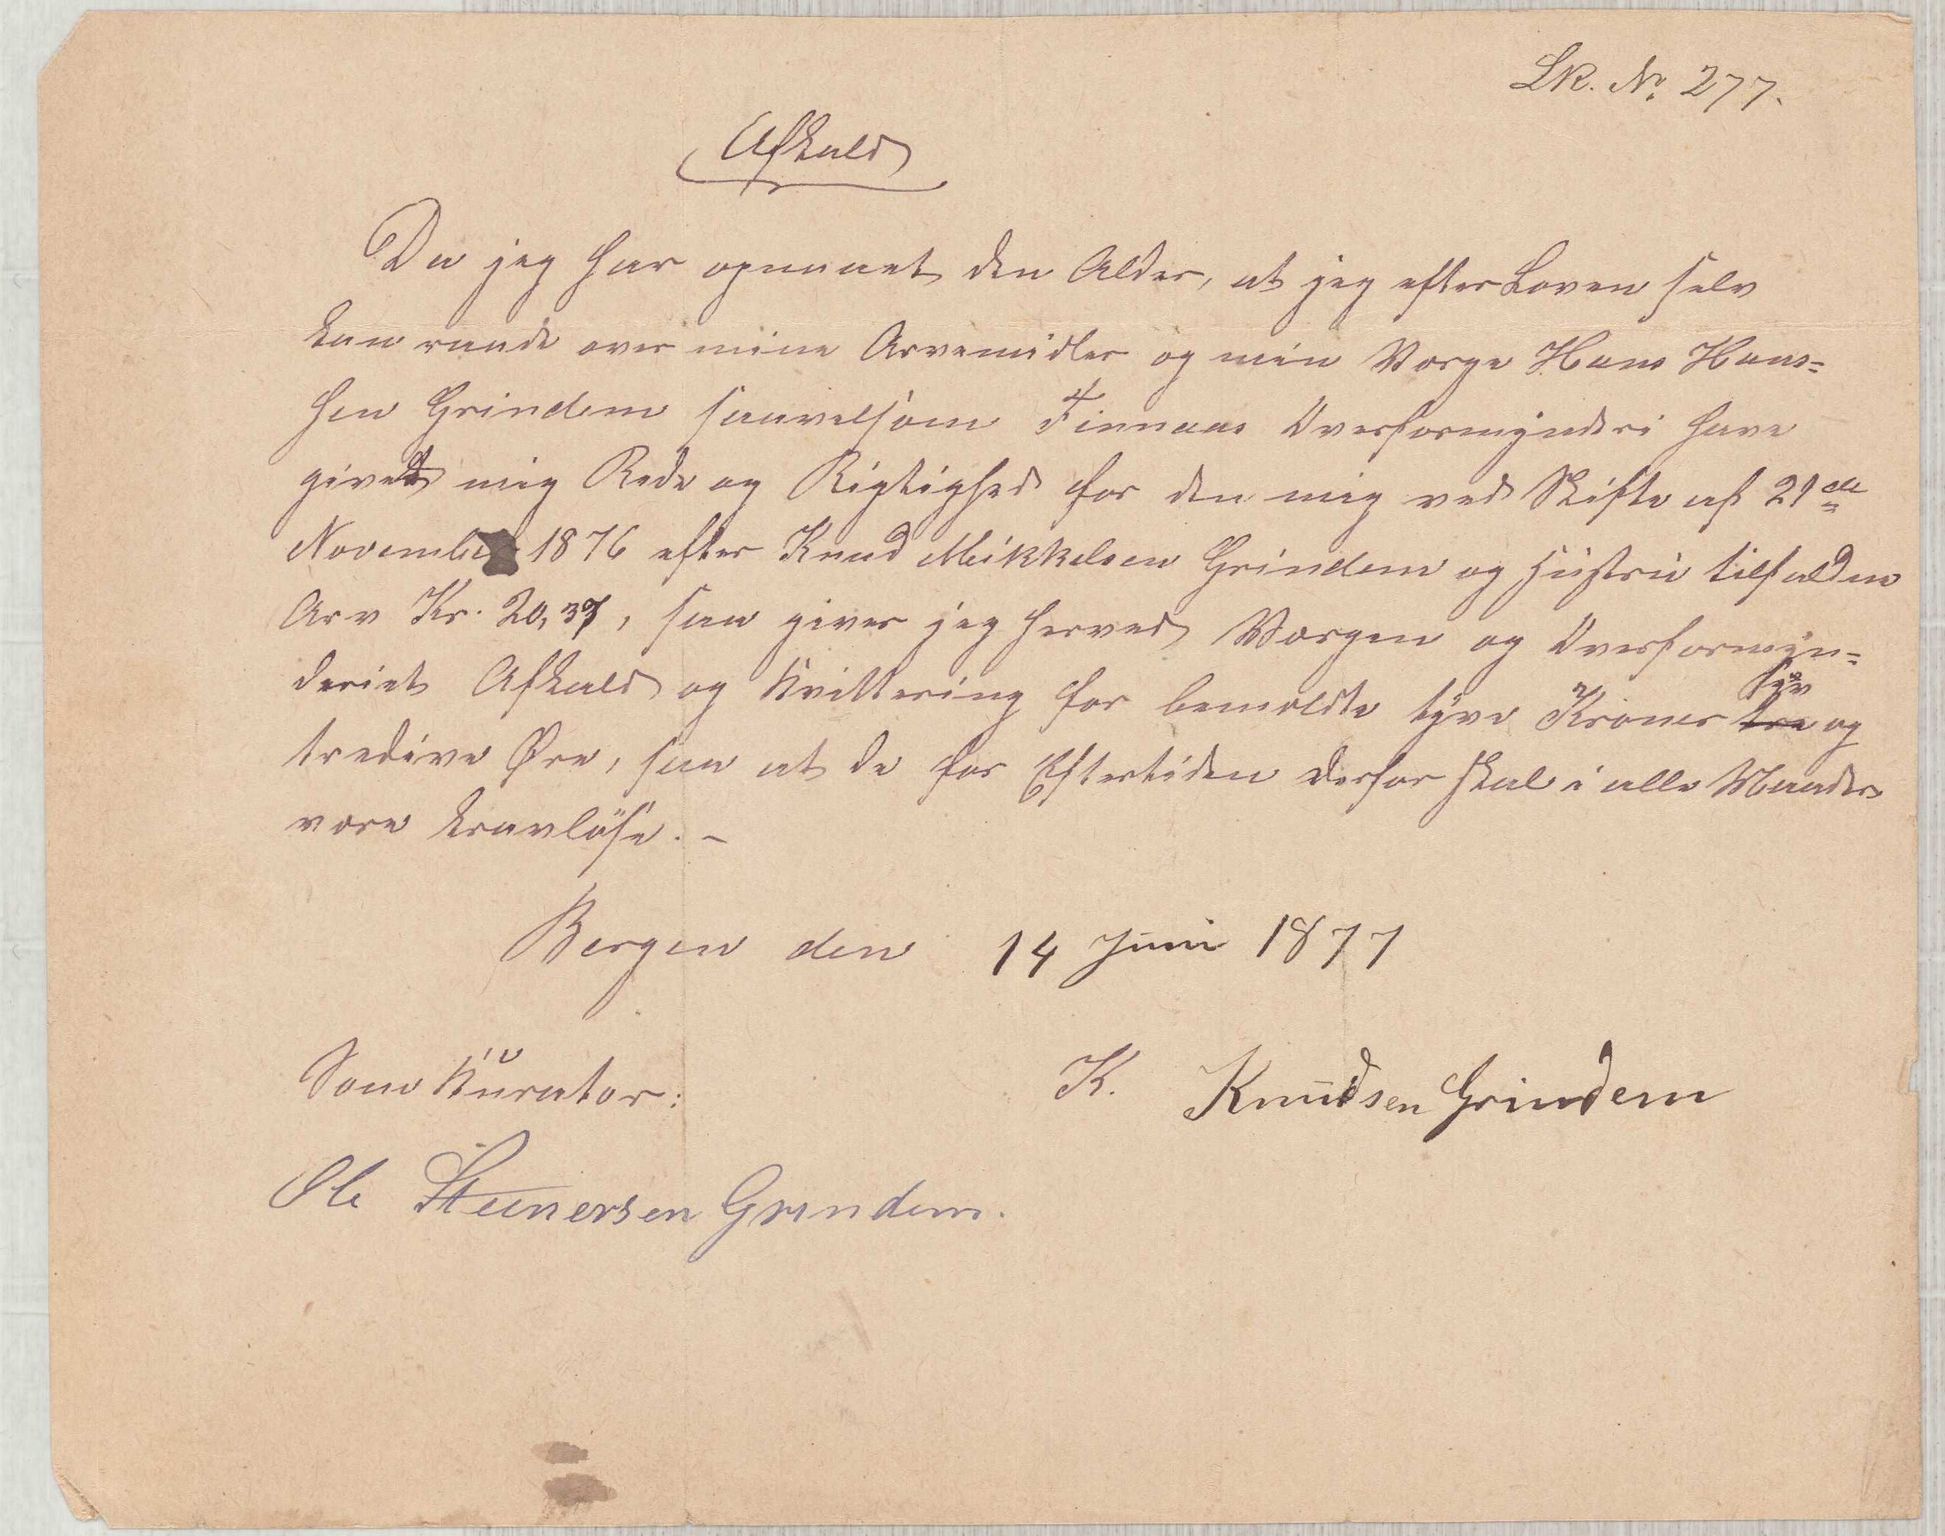 Lk. No. 277.
Afkald
Da jeg har opnaaet den Alder, at jeg efter Loven selv
kan raade over mine Arvemidler og min Værge Hans Hans=
sen Grindem saavelsom Finnaas Overformynderi have
givet mig Rede og Rigtighed for den mig ved Skifte af 21de
November 1876 efter Knud Mikkelsen Grindem og Hustru tilfaldne
Arv Kr. 20,37, saa giver jeg herved Værgen og Overformyn=
deriet Afkald og Kvittering for bemeldte tyve Kroner tre syv og
tredive Øre, saa at de for Eftertiden derfor skal i alle Maader
være kravløse. -
Bergen den 14 Juni 1877
Som Kurator: K. Knudsen Grindem
Ole Steinersen Grindem.